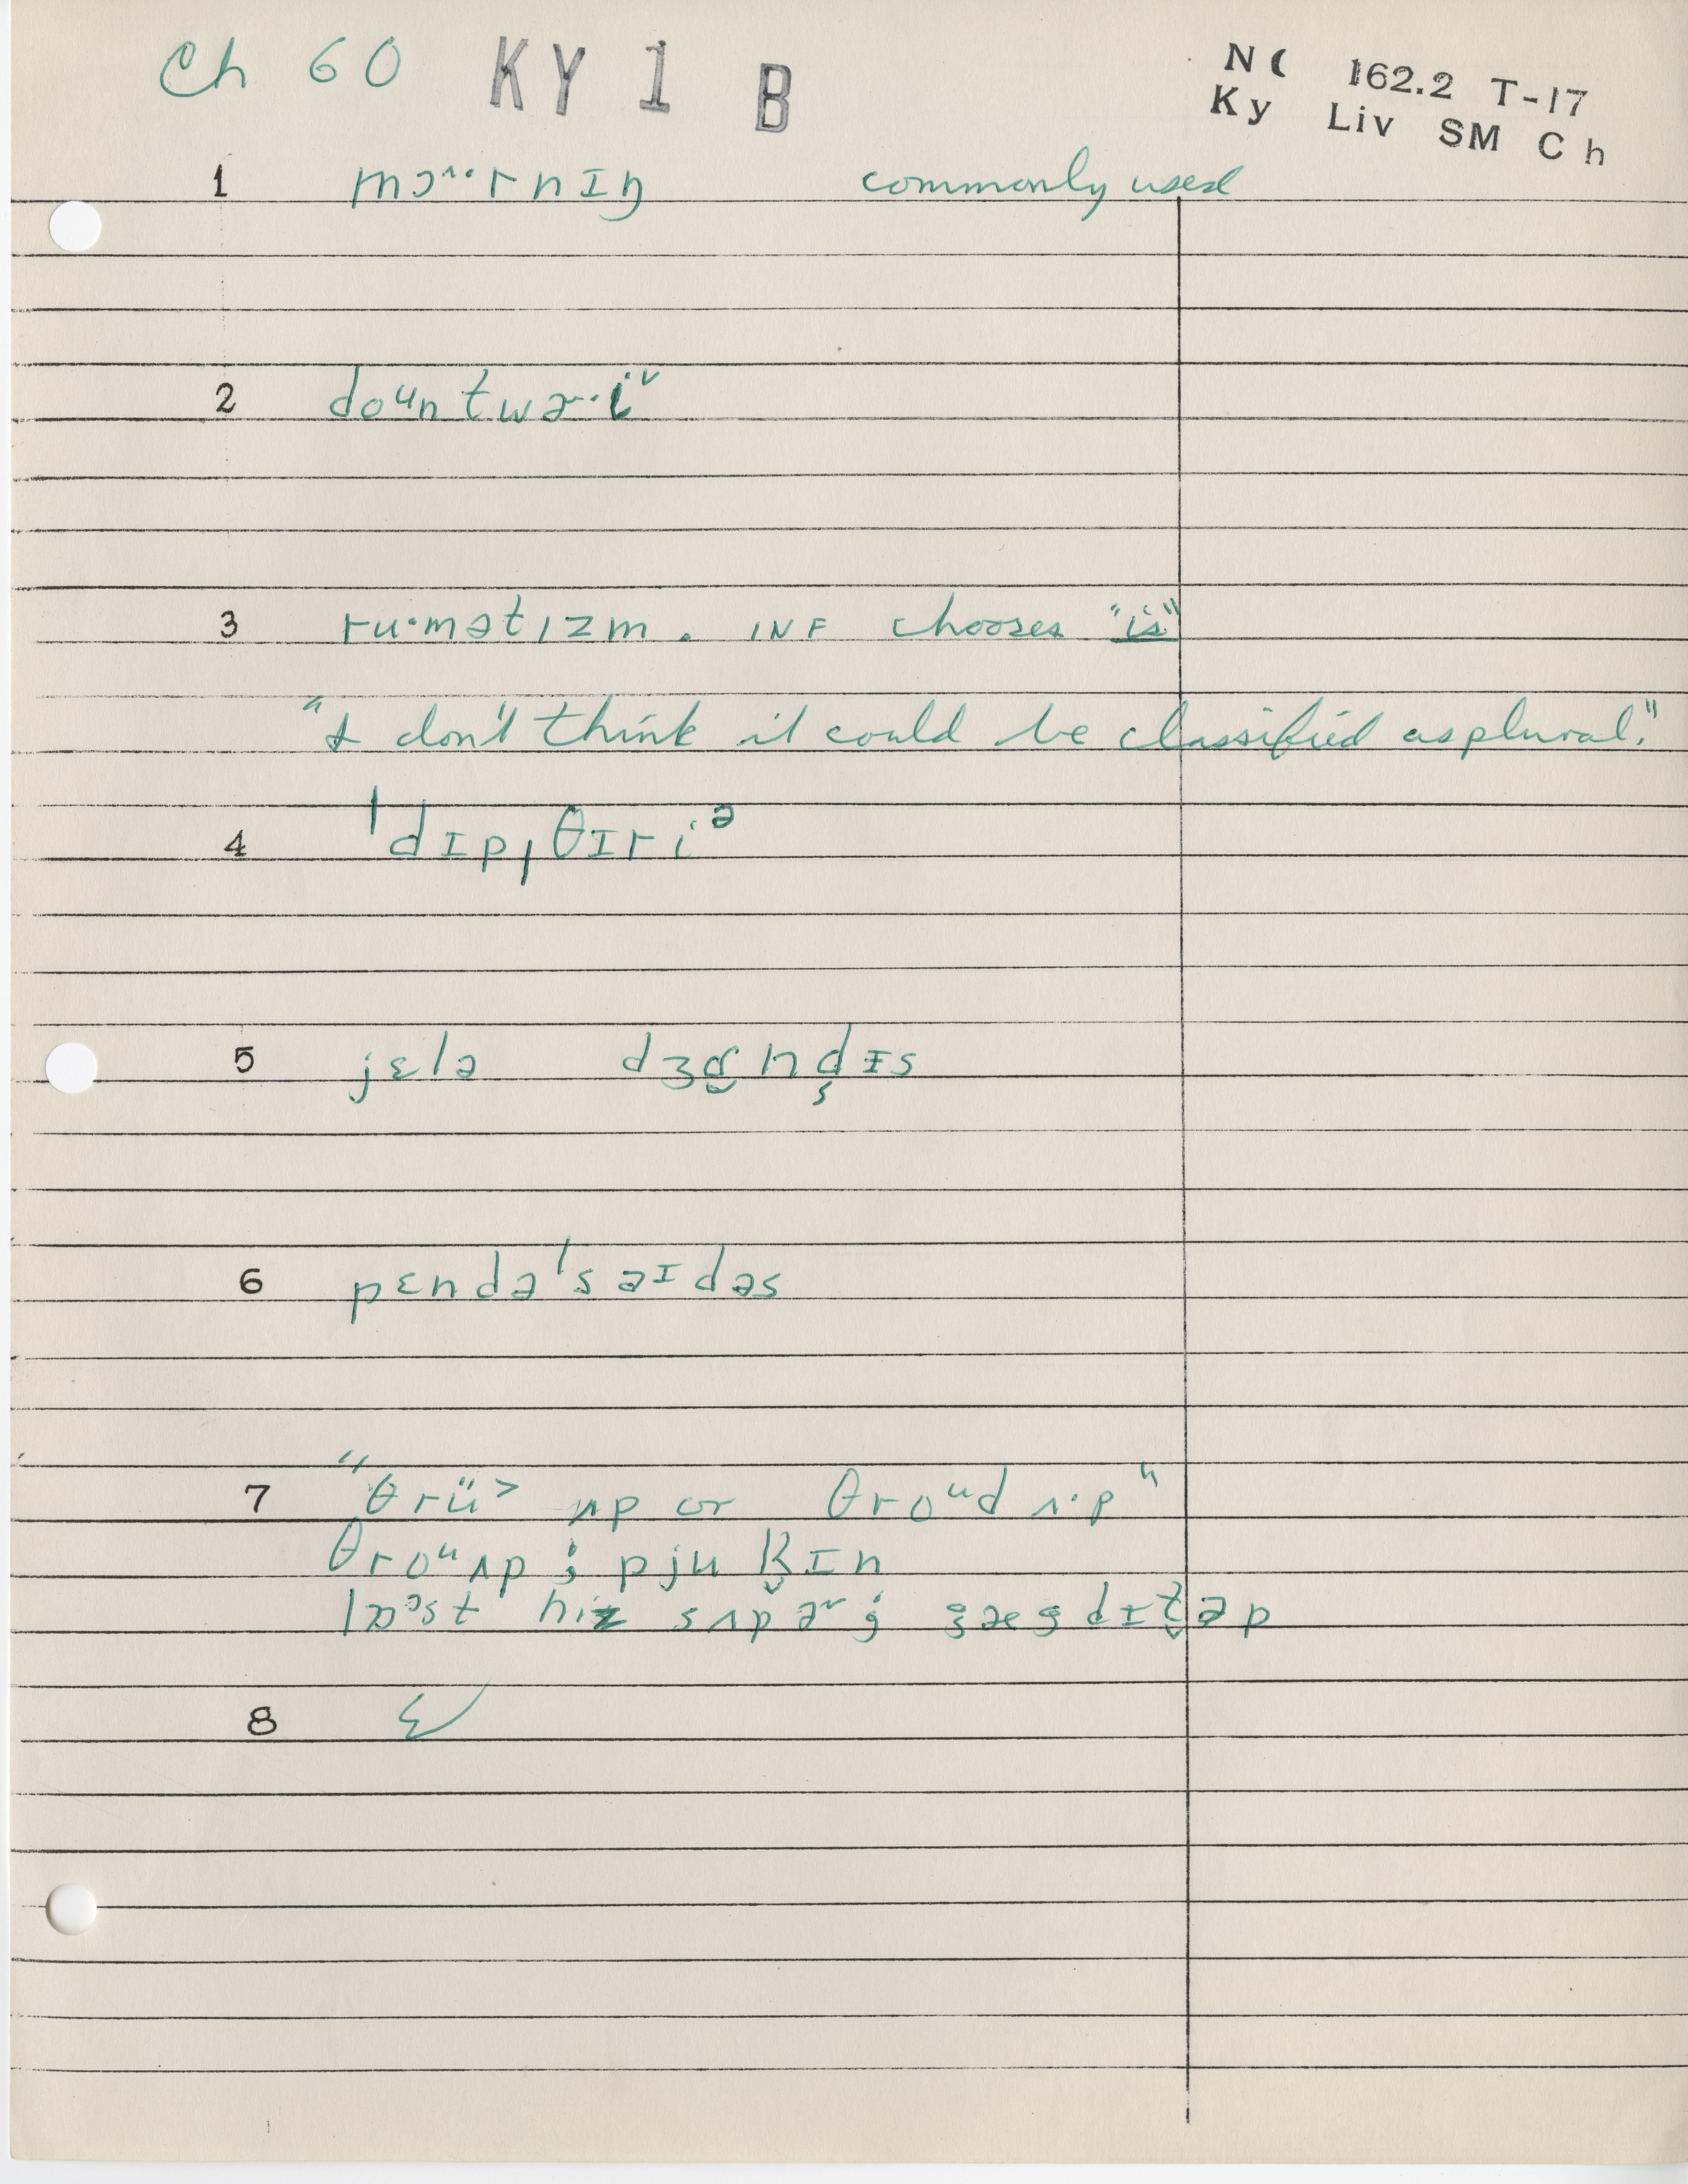 Ch 60 KY 1 B
N( 162.2 T-17
Ky Liv SM Ch
1 mɔ˄··rnɪŋ commonly used
2 doᵘn twɚ·i˅
3 ru·mətɪzm. INF chooses "is"
"I don't think it could be classified as plural."
4 ˈdɪpˌθɪriᵊ
5 jɛlə
6 pɛndəˈsaɪdəs
7 "θrü> ʌp or θroᵘd ʌ·p"
θroᵘʌp ; pju
sʌpɚ ;
8